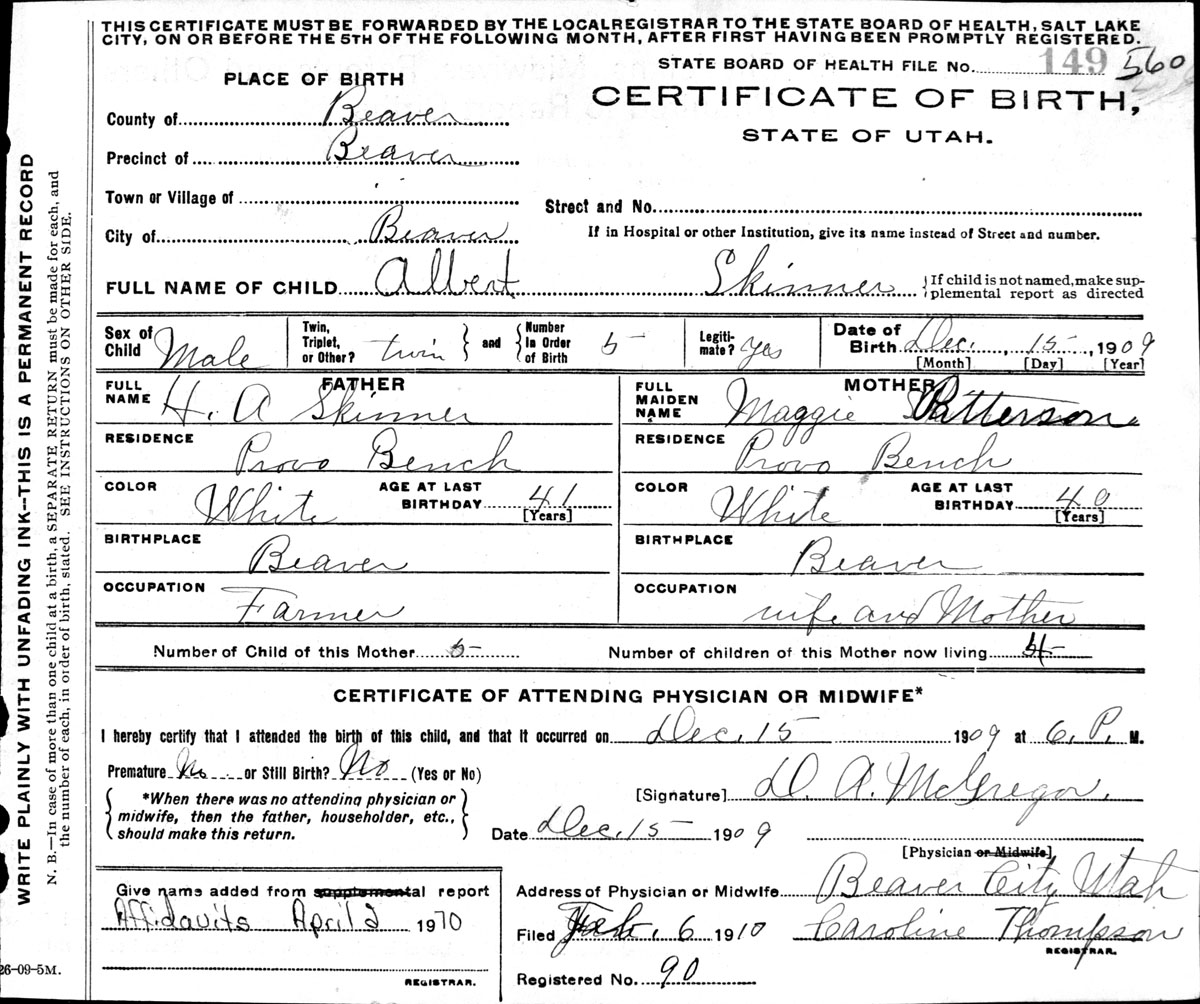 THIS CERTIFICATE MUST BE FORWARDED BY THE LOCAL REGISTRAR TO THE STATE BOARD OF HEALTH, SALT LAKE
CITY, ON OR BEFORE THE 5TH OF THE FOLLOWING MONTH, AFTER FIRST HAVING BEEN PROMPTLY REGISTERED.
STATE BOARD OF HEALTH FILE No. 149 560
PLACE OF BIRTH
CERTIFICATE OF BIRTH,
STATE OF UTAH.
County of Beaver
Precinct of Beaver
Town or Village of
Street and No.
City of Beaver
If in Hospital or other Institution, give its name instead of Street and number.
FULL NAME OF CHILD Albert Skinner {If child is not named, make sup-
plemental report as directed
Sex of Child Male
Twin, Triplet, or Other? twin
and
Number In Order of Birth 5
Legiti-mate? yes
Date of Birth Dec. 15, 1909
[Month] [Day] [Year]
FATHER
FULL NAME H. A Skinner
MOTHER
FULL MAIDEN NAME Maggie Patterson
RESIDENCE Provo Bench
RESIDENCE Provo Bench
COLOR White AGE AT LAST BIRTHDAY 41 [Years]
COLOR White AGE AT LAST BIRTHDAY 40 [Years]
BIRTHPLACE Beaver
BIRTHPLACE Beaver
OCCUPATION Farmer
OCCUPATION wife and Mother
Number of Child of this Mother 5
Number of children of this Mother now living 4
CERTIFICATE OF ATTENDING PHYSICIAN OR MIDWIFE*
I hereby certify that I attended the birth of this child, and that it occurred on Dec. 15 1909 at 6. P. M.
Premature No or Still Birth? No (Yes or No)
*When there was no attending physician or
midwife, then the father, householder, etc.,
should make this return.
[Signature] D. A. McGregor.
Date Dec. 15 1909
[Physician or Midwife]
Give name added from supplemental report
Affidavits April 2 1970
REGISTRAR.
Address of Physician or Midwife Beaver City Utah
Filed Feb. 6 1910 Caroline Thompson
REGISTRAR.
Registered No. 90
26-09-5M.
WRITE PLAINLY WITH UNFADING INK--THIS IS A PERMANENT RECORD
N. B.—In case of more than one child at a birth, a SEPARATE RETURN must be made for each, and
the number of each, in order of birth, stated. SEE INSTRUCTIONS ON OTHER SIDE.